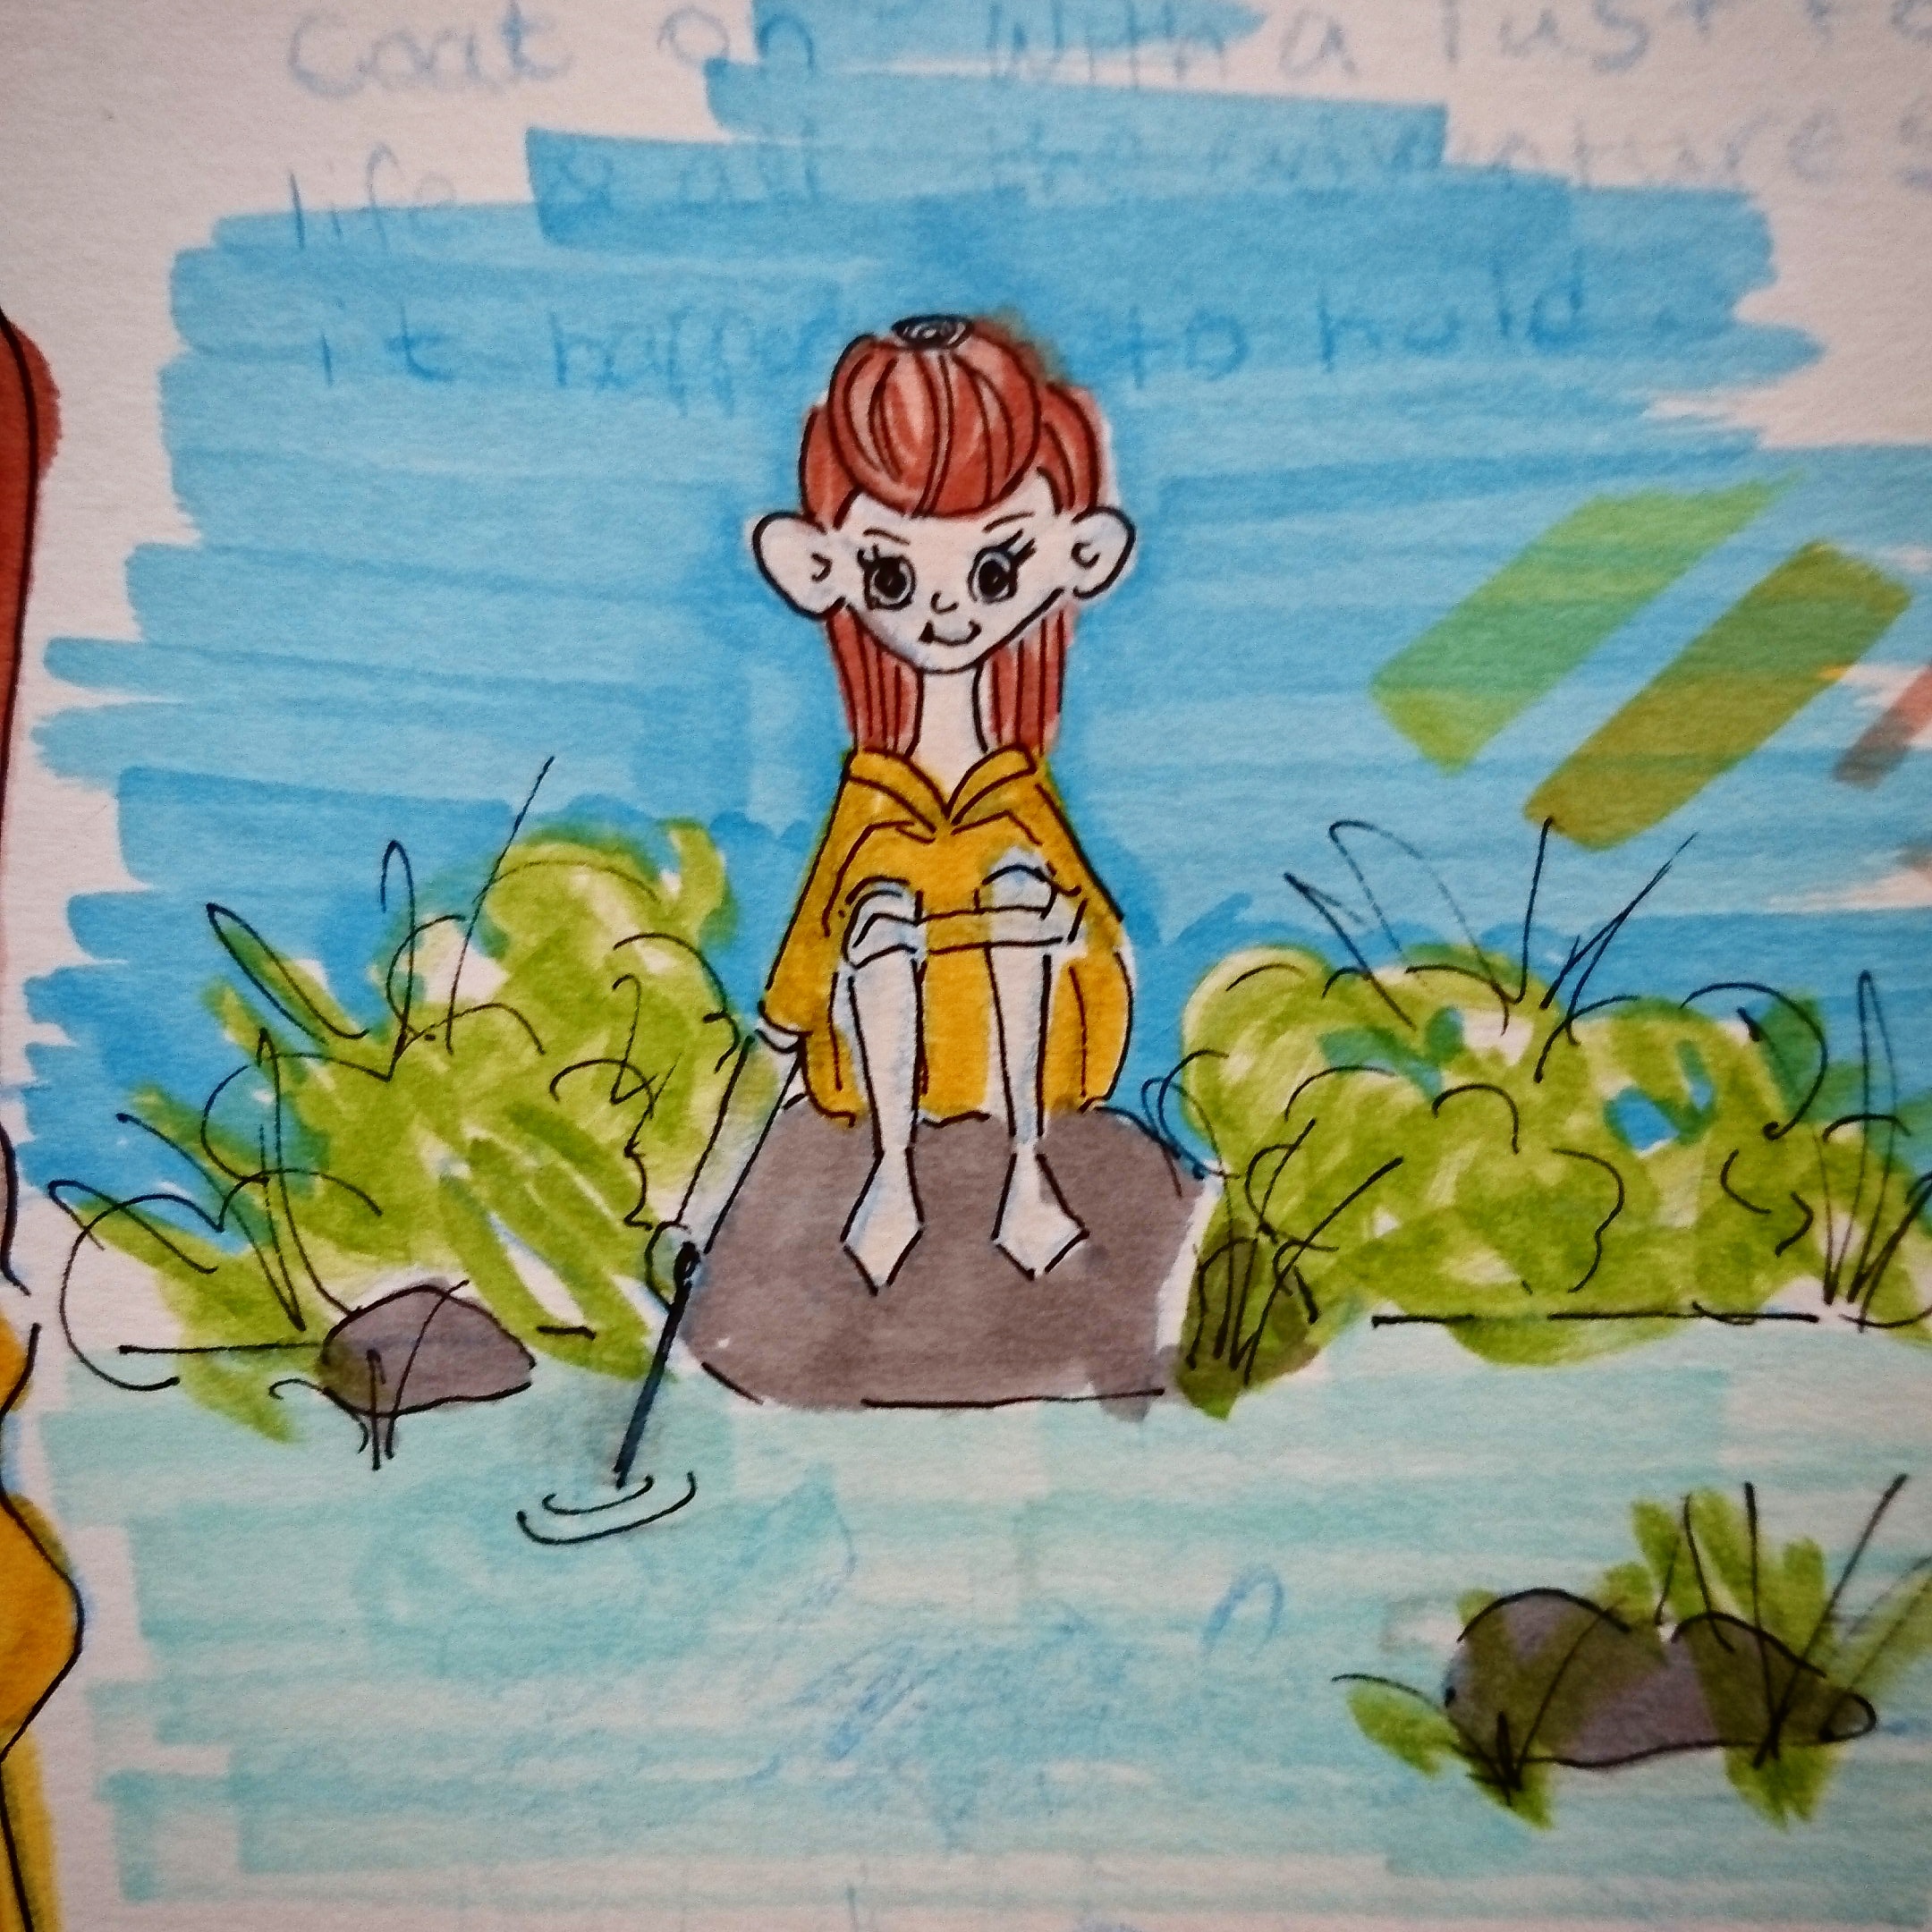 Coat on with a lust fo
life & all the adventures
it happens to hold